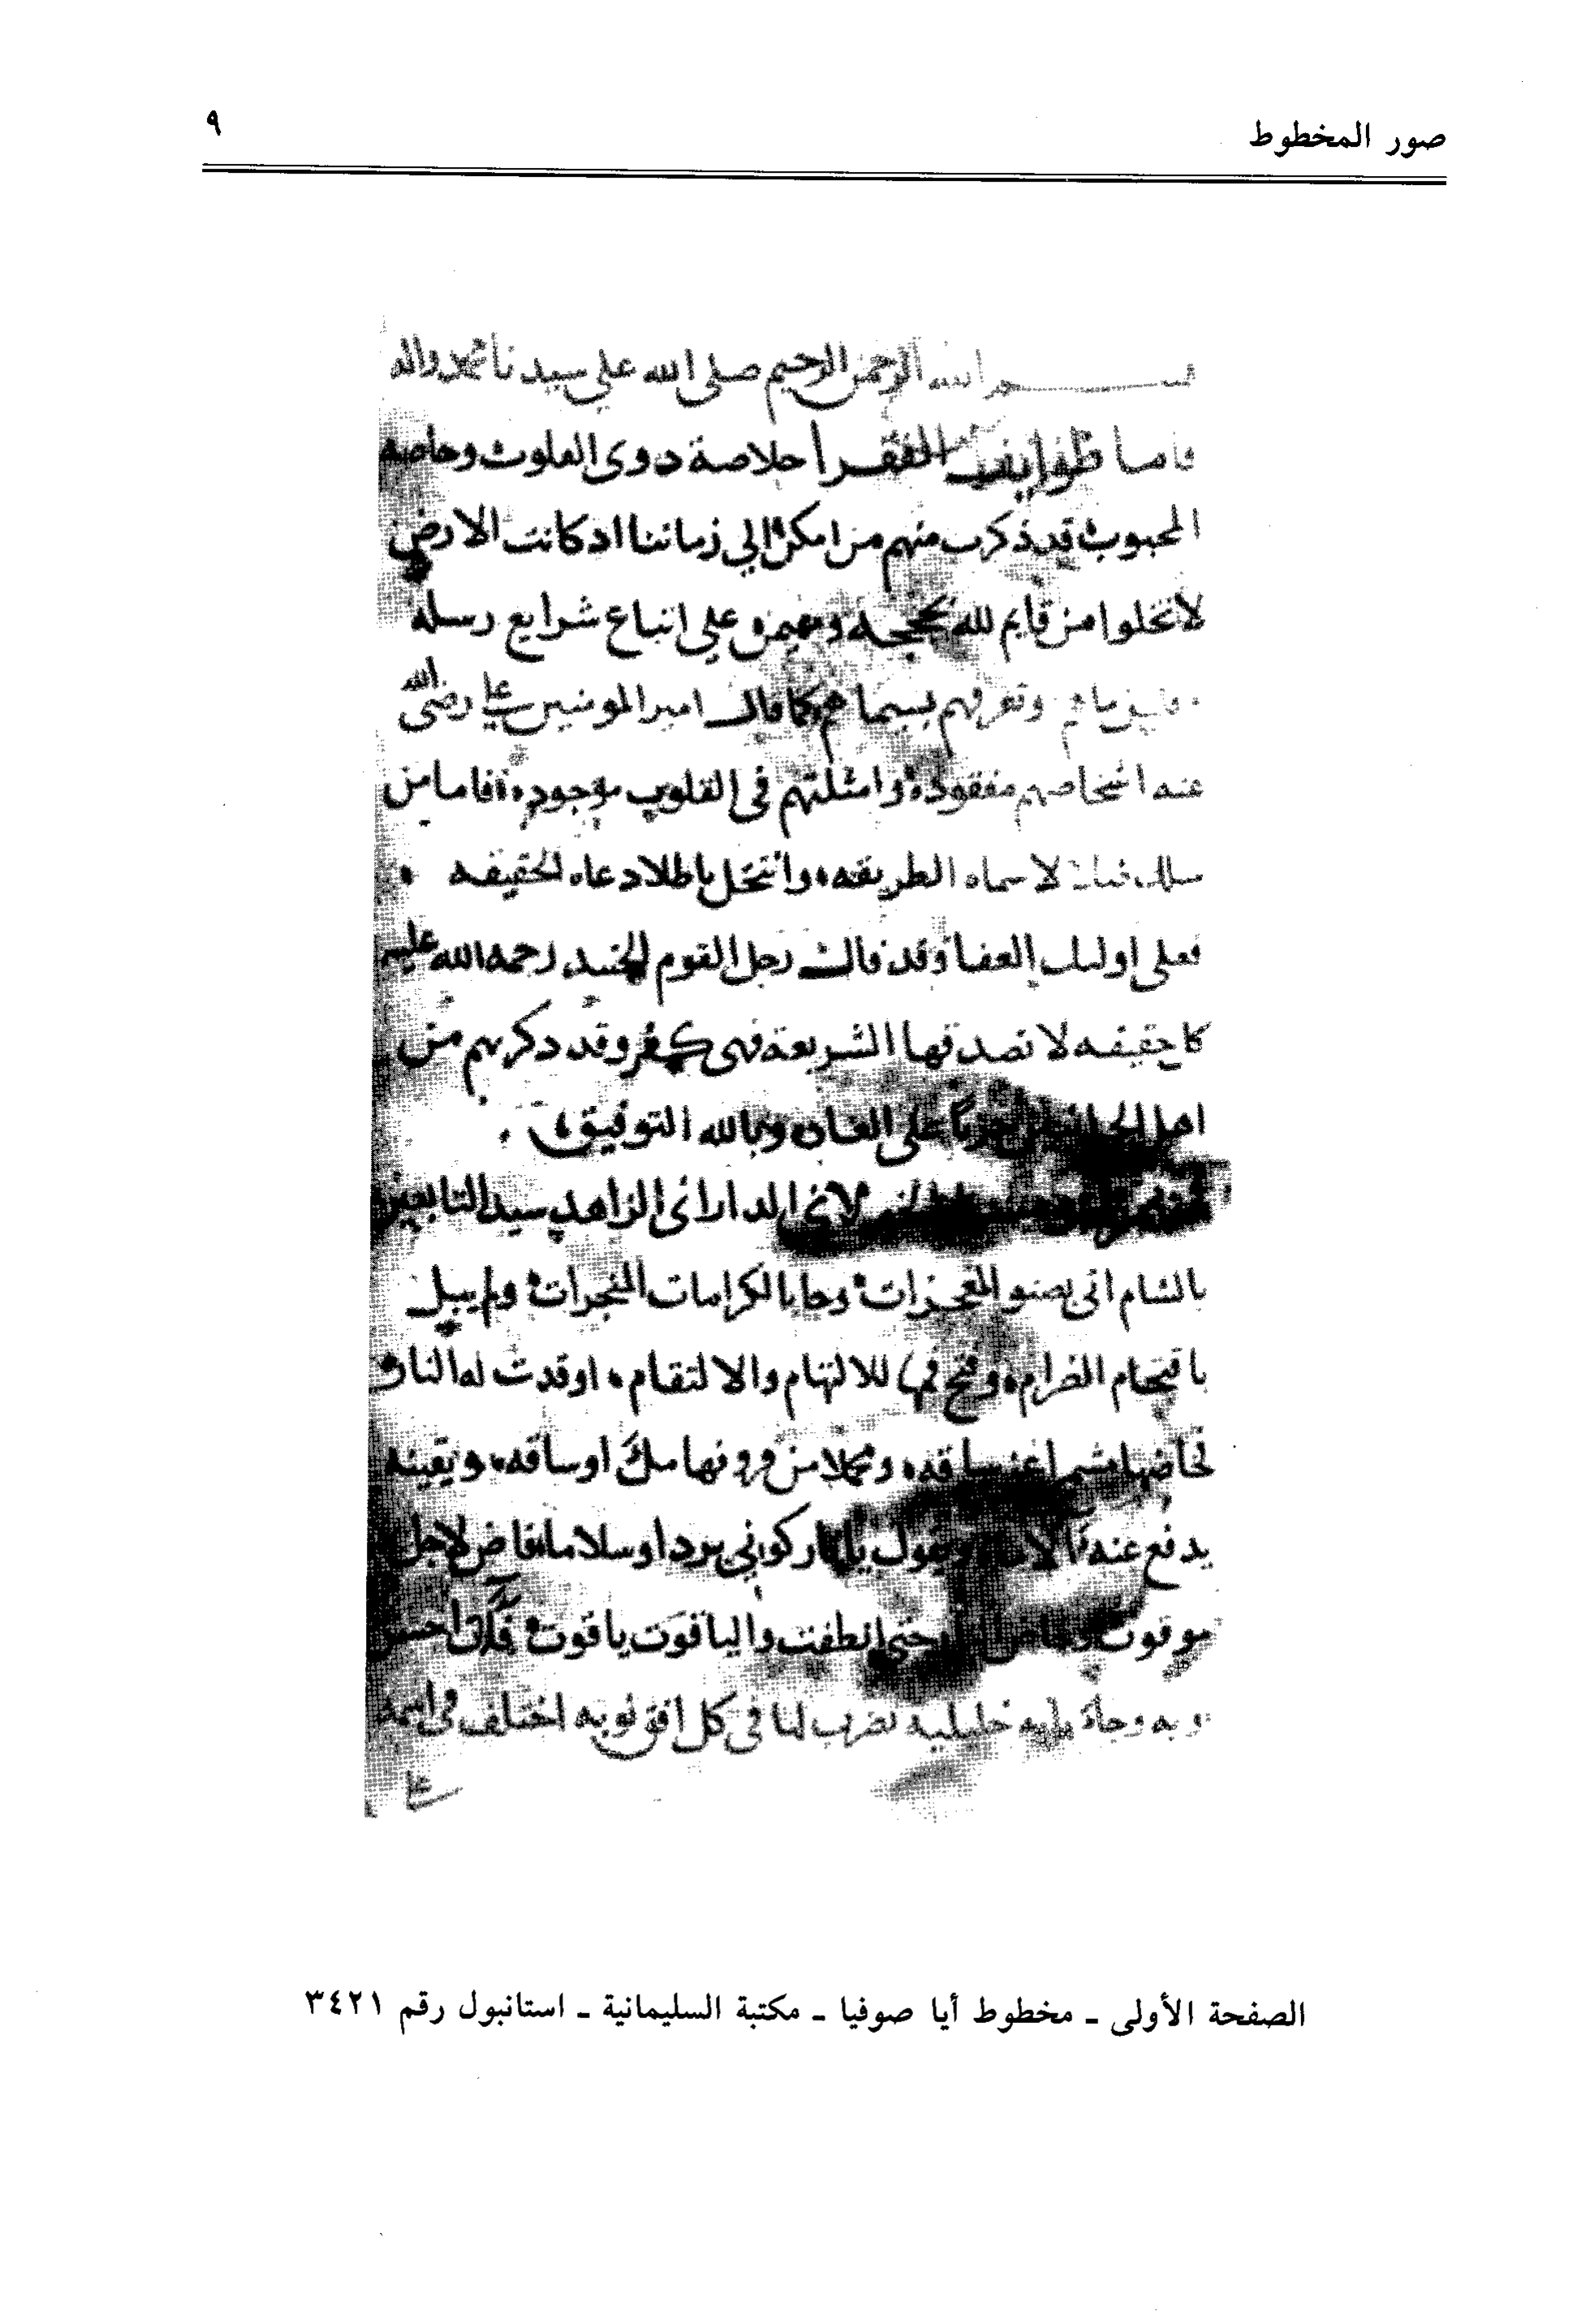 صور المخطوط
٩
الله الرحمن الرحيم صلى الله على سيدنا محمد واله
فاما طوايف الفقرا خلاصة ذوى القلوب وخاصة
المحبوب قد ذكرت منهم من امكن الي زماننا اذ كانت الارض
لا تخلوا من قايم لله بحججه على اتباع شرايع رسله
وتعرفهم بسيماهم كما قال امير المومنين علي رضى الله
عنه اشخاصهم مفقودة وامثلتهم فى القلوب موجودة فاما من
الطريقه وانتحل باطلا دعاه الحقيقه
فعلى اوليك العفا وقد قال رجل القوم الجنيد رحمه الله عليه
كل حقيقه لا تصدقها الشريعة فهى كفر وقد ذكرتهم من
اهل على وبالله التوفيق
الدارانى الزاهد سيد التابعين
بالشام اتى بصنو المعجزات وحابا الكرامات المنجزات ولم يبل
باقتحام الضرام وفتح فمها للالتهام والالتقام اوقدت له النار
فخاضها عن ساقه ويقينه
يدفع عنه ويقول يا نار كونى بردا وسلاما لاجل
موقوت حتى انطفت والياقوت ياقوت
خليليه تضرب لنا فى كل افق نوبه اختلف فى اسمه
على
الصفحة الأولى - مخطوط أيا صوفيا - مكتبة السليمانية - استانبول رقم ٣٤٢١